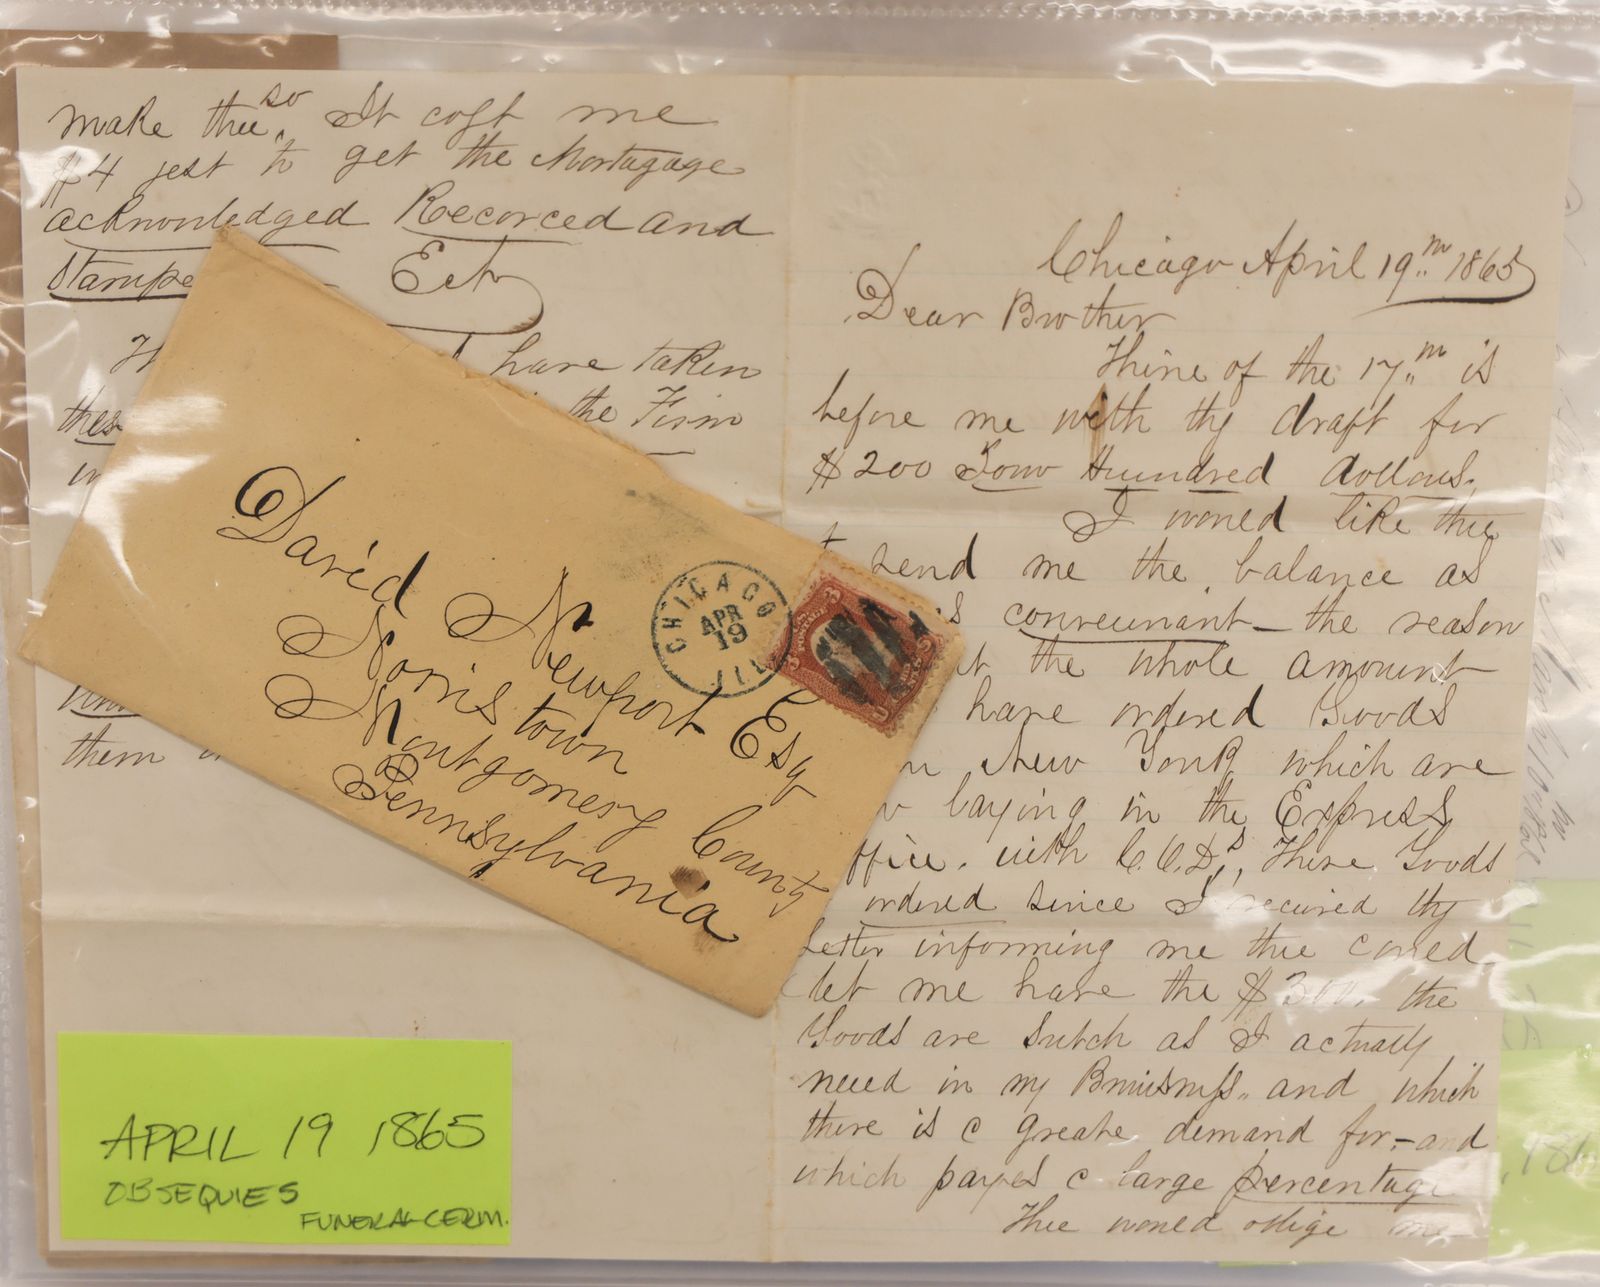 make thee so. It cost me
$4 jest to get the Mortagage
acknowledged Recorced and
Stampe
Ect
have taken
thes
the Firm
them
David Newport Esq
Norris town
Montgomery County
Pennsylvania
CHICAGO ILL
APR
19
Chicago April 19th 1865
Dear Brother
Thine of the 17th is
before me with thy draft for
$200 Tow Hundred dollars.
I woued like thee
send me the balance as
convenuant – the reason
the whole amount
have ordered Goods
New York which are
laying in the Express
ffice. with C.O.D.s, These Goods
ordered since I recieved thy
Letter informing me thee coued
let me have the $300. the
Goods are sutch as I actually
need in my Buisness. and which
there is a greate demand for, – and
which payes a large percentage
Thee woued oblige me
APRIL 19 1865
OBSEQUIES
FUNERAL CERM.